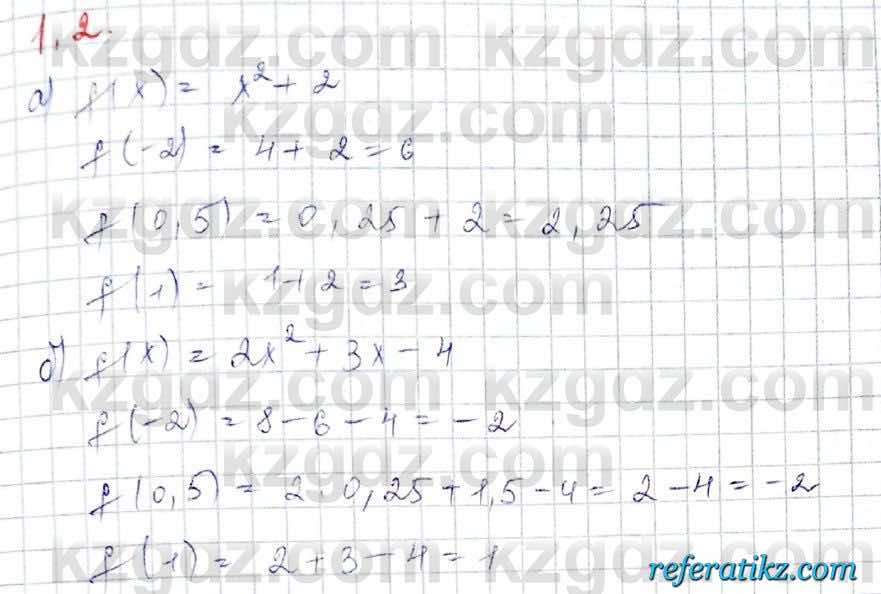 1.2.
а) f(x) = x² + 2
f(-2) = 4 + 2 = 6
f(0,5) = 0,25 + 2 = 2,25
f(1) = 1 + 2 = 3
б) f(x) = 2x² + 3x - 4
f(-2) = 8 - 6 - 4 = -2
f(0,5) = 2·0,25 + 1,5 - 4 = 2 - 4 = -2
f(1) = 2 + 3 - 4 = 1
kzgdz.com kzgdz.com
kzgdz.com
kzgdz.com kzgdz.com
kzgdz.com
kzgdz.com kzgdz.com
kzgdz.com
kzgdz.com kzgdz.com
referatikz.com